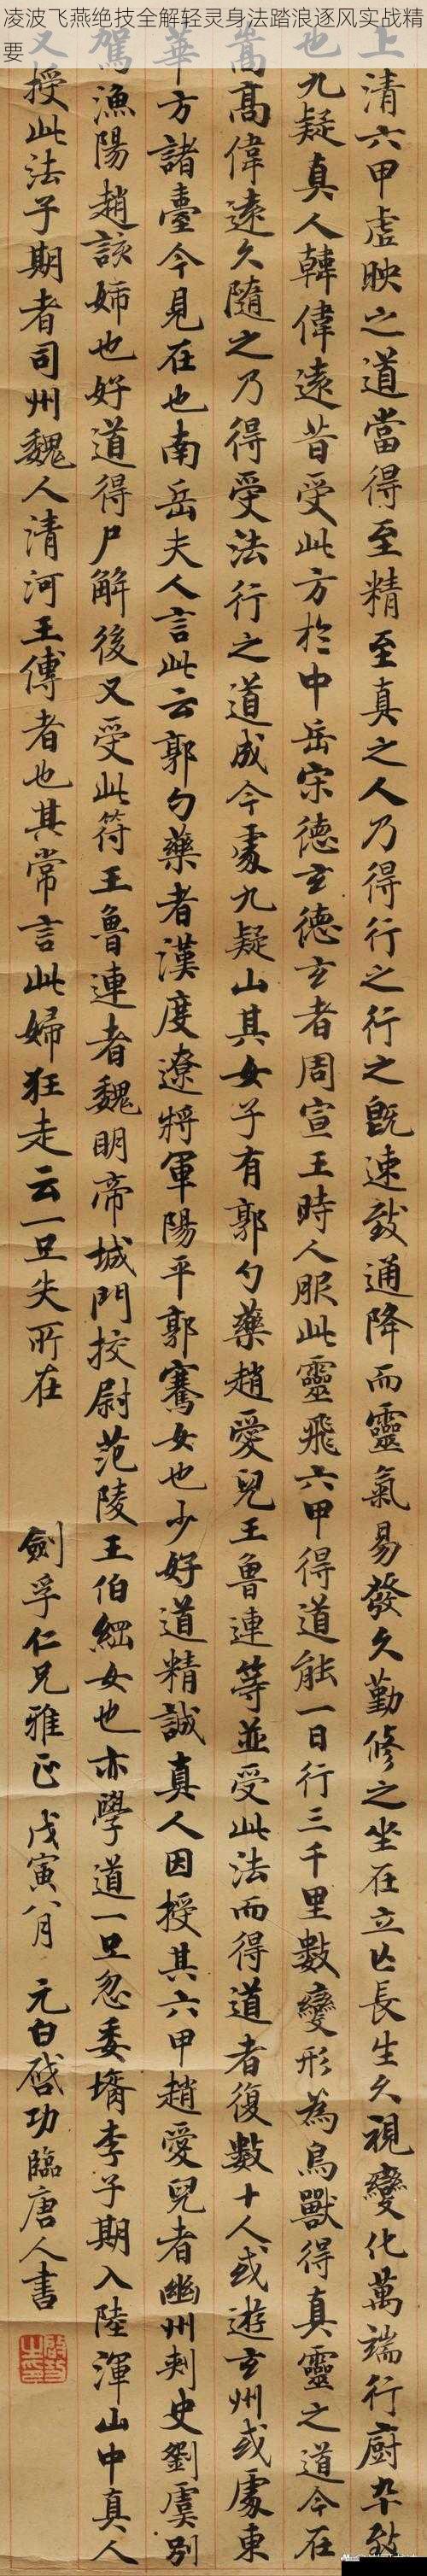 凌波飞燕绝技全解轻灵身法踏浪逐风实战精
要
上清六甲虚映之道當得至精至真之人乃得行之行之既速致通降而靈氣易發久勤修之坐在立亡長生久視變化萬端行廚卒致
也九疑真人韓偉遠昔受此方於中岳宋德玄德玄者周宣王時人服此靈飛六甲得道能一日行三千里數變形為鳥獸得真靈之道今在
嵩高偉遠久隨之乃得受法行之道成今處九疑山其女子有郭勺藥趙愛兒王魯連等並受此法而得道者復數十人或遊玄州或處東
華方諸臺今見在也南岳夫人言此云郭勺藥者漢度遼將軍陽平郭騫女也少好道精誠真人因授其六甲趙愛兒者幽州刺史劉虞別
駕漁陽趙該姊也好道得尸解後又受此符王魯連者魏明帝城門挍尉范陵王伯綱女也亦學道一旦忽委壻李子期入陸渾山中真人
又授此法子期者司州魏人清河王傅者也其常言此婦狂走云一旦失所在
劍孚仁兄雅正 戊寅八月 元白啓功臨唐人書